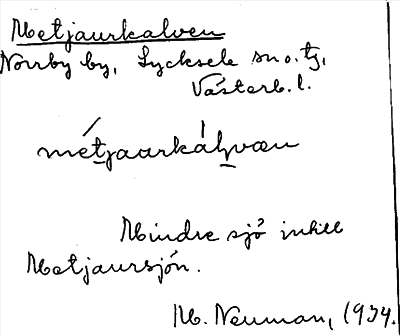 Metjaurkalven
Norrby by, Lycksele sn o. tg,
Västerb. l.
métjaarkálvæn
Mindre sjö intill
Metjaursjön.
M. Neuman, 1934.